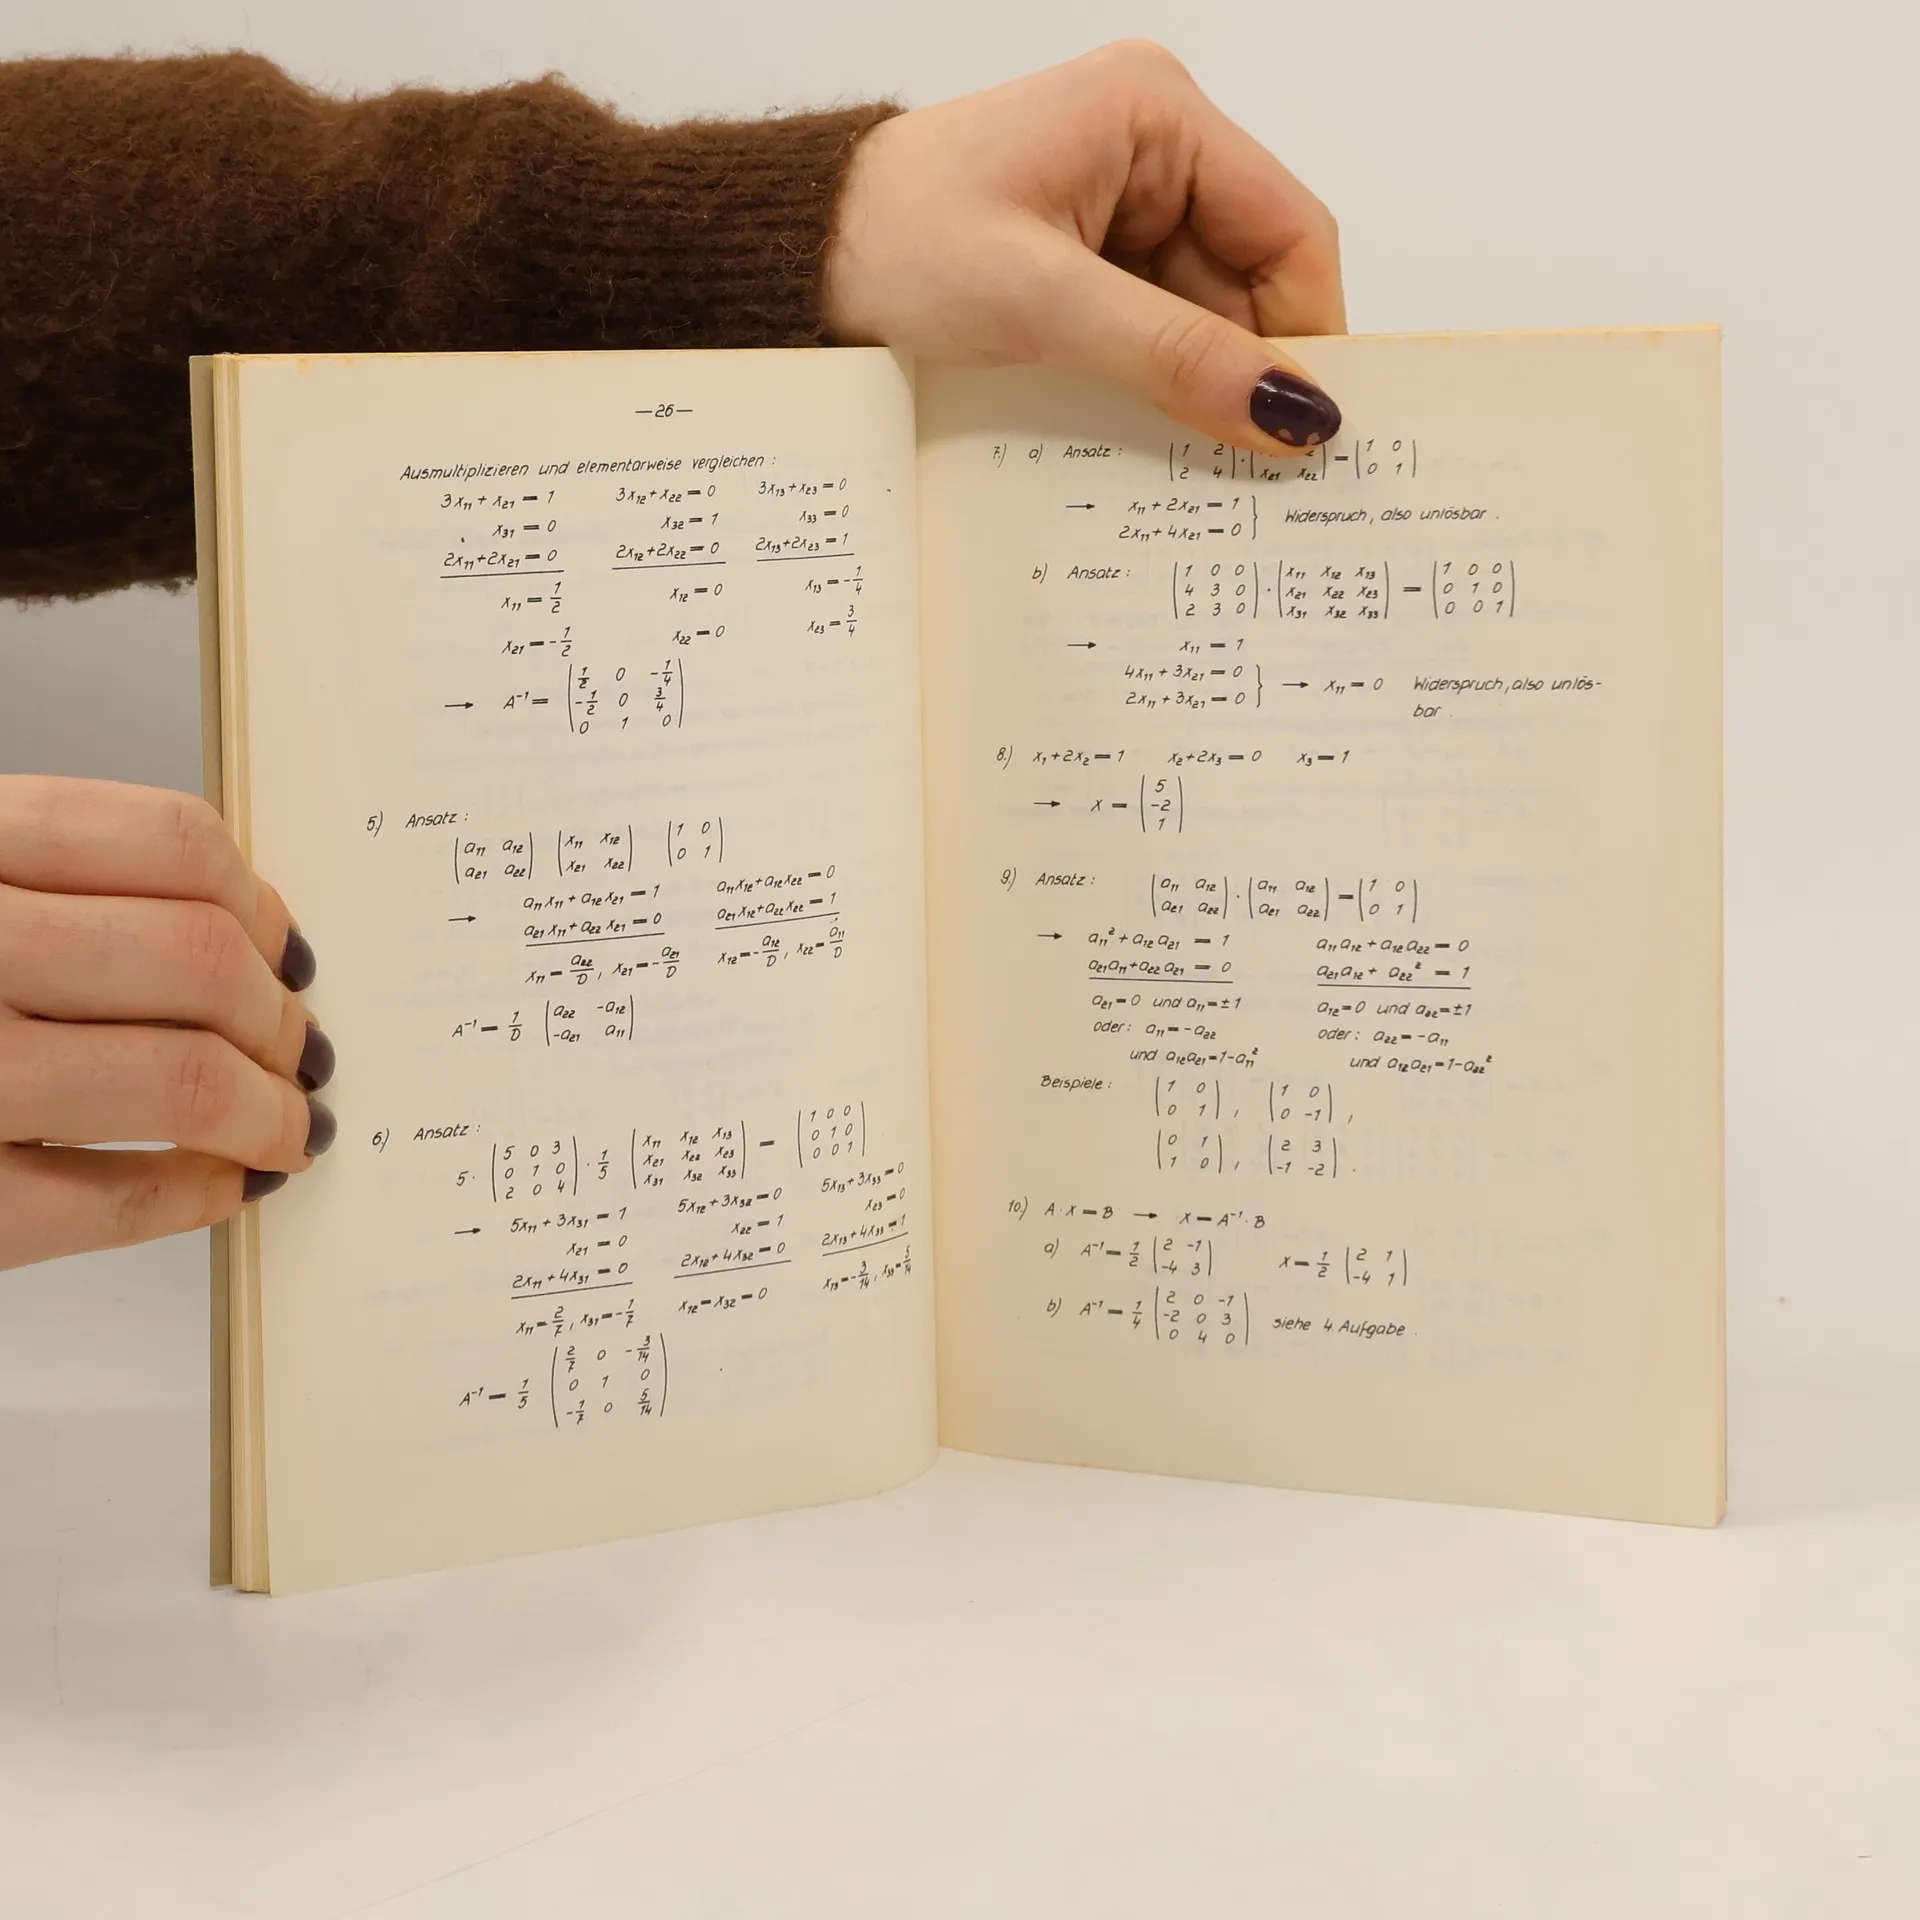 —26—
Ausmultiplizieren und elementarweise vergleichen :
3x₁₁ + x₂₁ = 1 3x₁₂ + x₂₂ = 0 3x₁₃ + x₂₃ = 0
x₃₁ = 0 x₃₂ = 1 x₃₃ = 0
2x₁₁+2x₂₁ = 0 2x₁₂+2x₂₂ = 0 2x₁₃+2x₂₃ = 1
x₁₁ = 1/2 x₁₂ = 0 x₁₃ = -1/4
x₂₁ = -1/2 x₂₂ = 0 x₂₃ = 3/4
1/2 0 -1/4
→ A⁻¹ = -1/2 0 3/4
0 1 0
5.) Ansatz :
a₁₁ a₁₂ x₁₁ x₁₂ 1 0
a₂₁ a₂₂ x₂₁ x₂₂ 0 1
→ a₁₁x₁₁ + a₁₂x₂₁ = 1 a₁₁x₁₂+a₁₂x₂₂ = 0
a₂₁x₁₁+a₂₂x₂₁ = 0 a₂₁x₁₂+a₂₂x₂₂ = 1
x₁₁ = a₂₂/D , x₂₁ = -a₂₁/D x₁₂ = -a₁₂/D , x₂₂ = a₁₁/D
A⁻¹ = 1/D a₂₂ -a₁₂
-a₂₁ a₁₁
6.) Ansatz :
5 0 3 x₁₁ x₁₂ x₁₃ 1 0 0
5· 0 1 0 · 1/5 x₂₁ x₂₂ x₂₃ = 0 1 0
2 0 4 x₃₁ x₃₂ x₃₃ 0 0 1
→ 5x₁₁ + 3x₃₁ = 1 5x₁₂+3x₃₂ = 0 5x₁₃+3x₃₃ = 0
x₂₁ = 0 x₂₂ = 1 x₂₃ = 0
2x₁₁+4x₃₁ = 0 2x₁₂+4x₃₂ = 0 2x₁₃+4x₃₃ = 1
x₁₁ = 2/7 , x₃₁ = -1/7 x₁₂ = x₃₂ = 0 x₁₃ = -3/14 , x₃₃ = 5/14
2/7 0 -3/14
A⁻¹ = 1/5 0 1 0
-1/7 0 5/14
7.) a) Ansatz : 1 2 · 2 = 1 0
2 4 x₂₁ x₂₂ 0 1
→ x₁₁ + 2x₂₁ = 1
2x₁₁ + 4x₂₁ = 0 } Widerspruch, also unlösbar .
b) Ansatz : 1 0 0 x₁₁ x₁₂ x₁₃ 1 0 0
4 3 0 · x₂₁ x₂₂ x₂₃ = 0 1 0
2 3 0 x₃₁ x₃₂ x₃₃ 0 0 1
→ x₁₁ = 1
4x₁₁ + 3x₂₁ = 0
2x₁₁ + 3x₂₁ = 0 } → x₁₁ = 0 Widerspruch, also unlös-
bar .
8.) x₁ + 2x₂ = 1 x₂+2x₃ = 0 x₃ = 1
5
→ x = -2
1
9.) Ansatz : a₁₁ a₁₂ · a₁₁ a₁₂ = 1 0
a₂₁ a₂₂ a₂₁ a₂₂ 0 1
→ a₁₁² + a₁₂a₂₁ = 1 a₁₁a₁₂ + a₁₂a₂₂ = 0
a₂₁a₁₁+a₂₂a₂₁ = 0 a₂₁a₁₂ + a₂₂² = 1
a₂₁=0 und a₁₁=±1 a₁₂=0 und a₂₂=±1
oder : a₁₁=-a₂₂ oder : a₂₂=-a₁₁
und a₁₂a₂₁=1-a₁₁² und a₁₂a₂₁=1-a₂₂²
Beispiele : 1 0 1 0
0 1 , 0 -1 ,
0 1 2 3
1 0 , -1 -2 .
10.) A · X = B → X = A⁻¹ · B
a) A⁻¹ = 1/2 2 -1 X = 1/2 2 1
-4 3 -4 1
2 0 -1
b) A⁻¹ = 1/4 -2 0 3 siehe 4. Aufgabe .
0 4 0